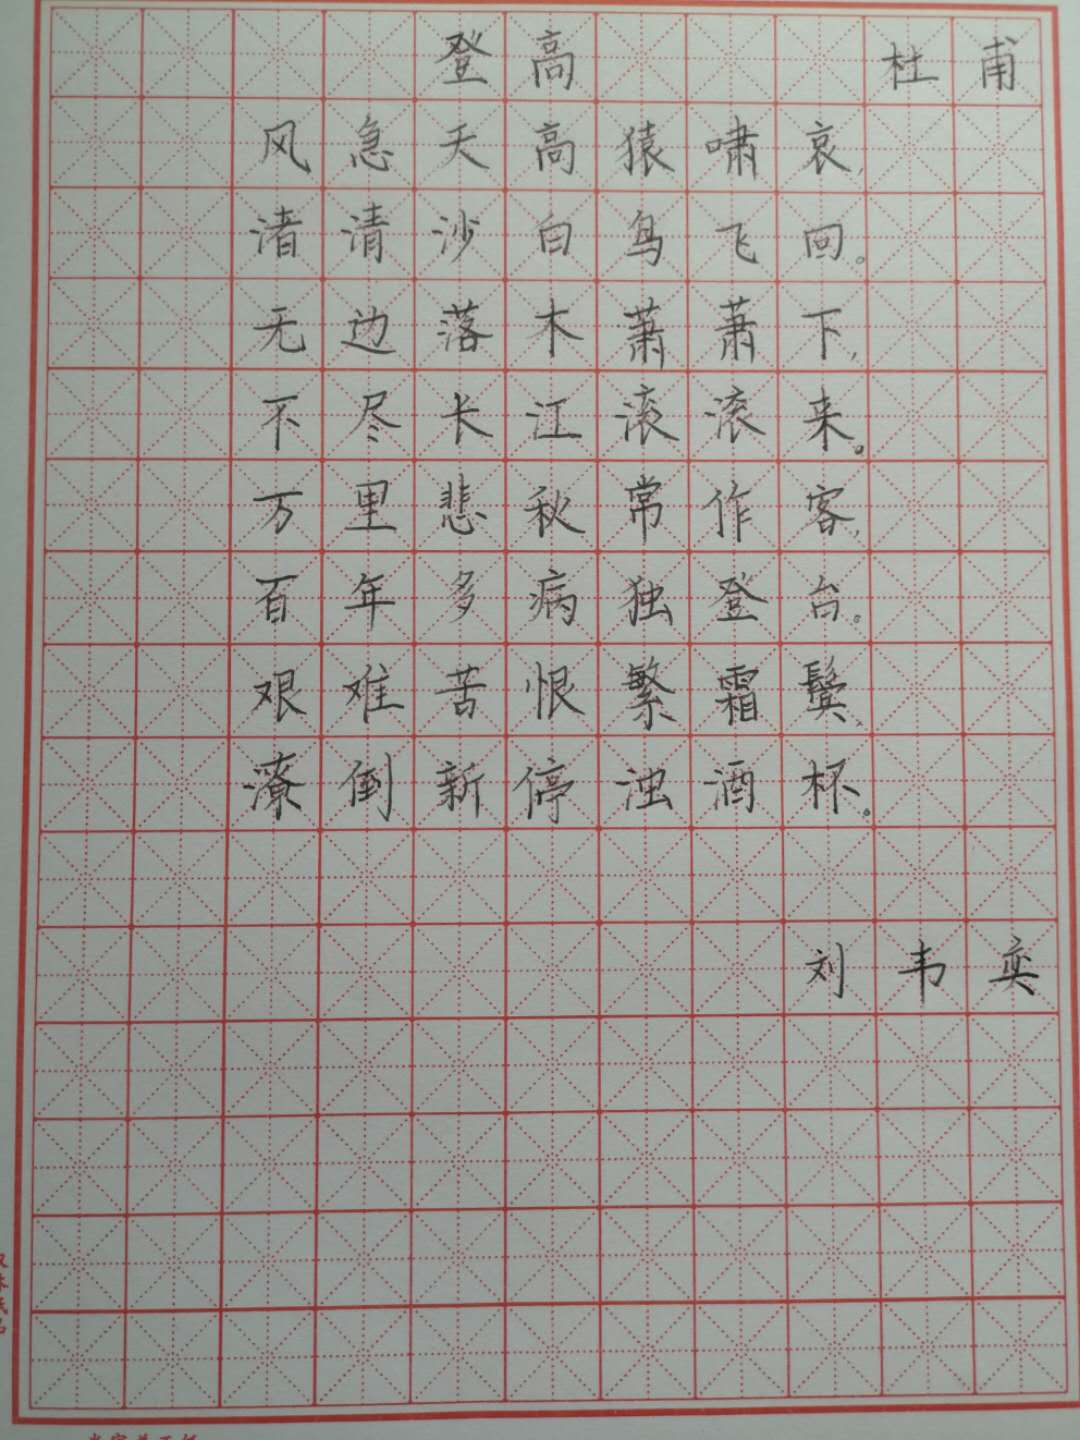 登高 杜甫
风急天高猿啸哀,
渚清沙白鸟飞回。
无边落木萧萧下,
不尽长江滚滚来。
万里悲秋常作客,
百年多病独登台。
艰难苦恨繁霜鬓,
潦倒新停浊酒杯。
刘韦奕